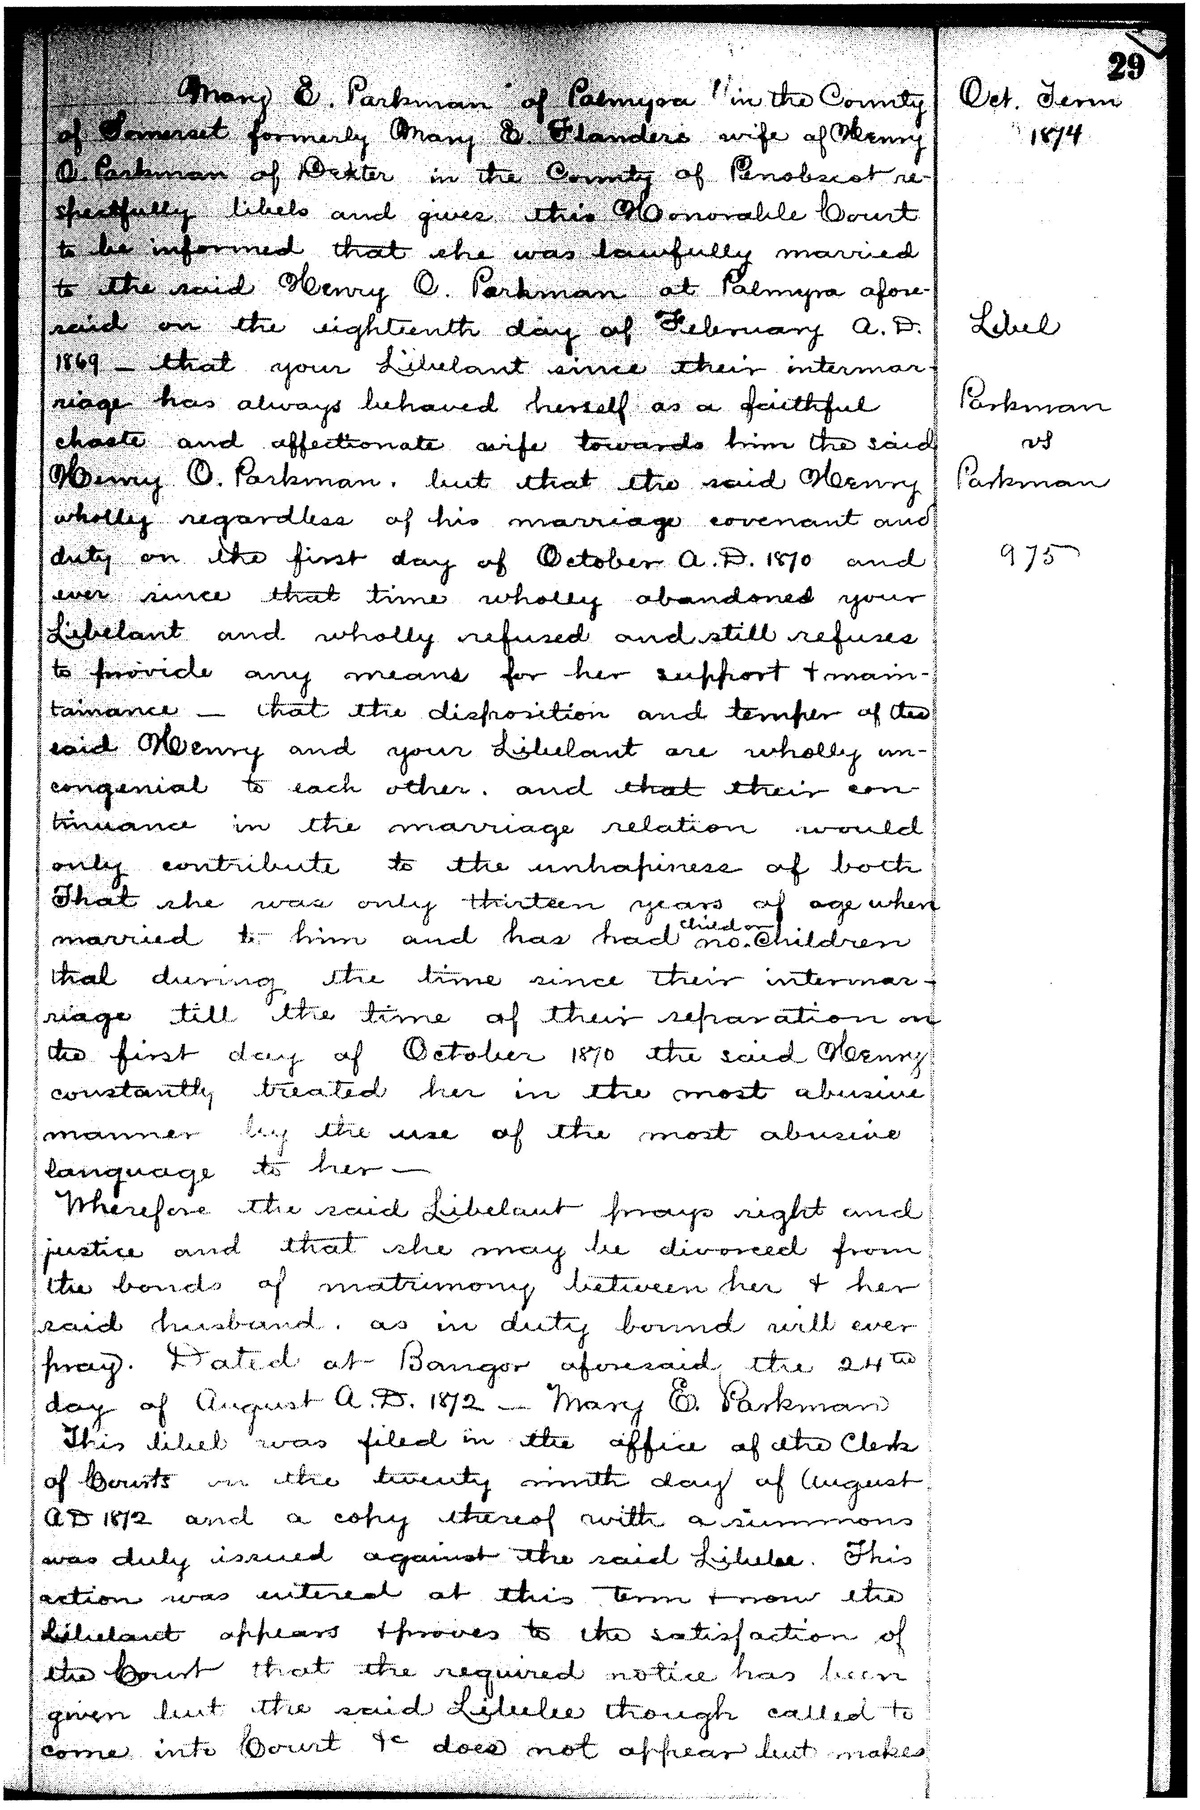 29
Mary E. Parkman of Palmyra in the County
of Somerset formerly Mary E. Flanders wife of Henry
O. Parkman of Dexter in the County of Penobscot re-
spectfully libels and gives this Honorable Court
to be informed that she was lawfully married
to the said Henry O. Parkman at Palmyra afore-
said on the eighteenth day of February A.D.
1869 — that your Libelant since their intermar-
riage has always behaved herself as a faithful
chaste and affectionate wife towards him the said
Henry O. Parkman. but that the said Henry
wholly regardless of his marriage covenant and
duty on the first day of October A.D. 1870 and
ever since that time wholly abandoned your
Libelant and wholly refused and still refuses
to provide any means for her support + main-
tainance — that the disposition and temper of the
said Henry and your Libelant are wholly un-
congenial to each other. and that their con-
tinuance in the marriage relation would
only contribute to the unhapiness of both
That she was only thirteen years of age when
married to him and has had child or no. Children
that during the time since their intermar-
riage till the time of their separation on
the first day of October 1870 the said Henry
constantly treated her in the most abusive
manner by the use of the most abusive
language to her —
Wherefore the said Libelant prays right and
justice and that she may be divorced from
the bonds of matrimony between her + her
said husband. as in duty bound will ever
pray. Dated at Bangor aforesaid the 24th
day of August A.D. 1872 — Mary E. Parkman
This libel was filed in the office of the Clerk
of Courts on the twenty ninth day of August
AD 1872 and a copy thereof with a summons
was duly issued against the said Libelee. This
action was entered at this term + now the
Libelant appears + proves to the satisfaction of
the Court that the required notice has been
given but the said Libelee though called to
come into Court &c does not appear but makes
Oct. Term
1874
Libel
Parkman
vs
Parkman
975